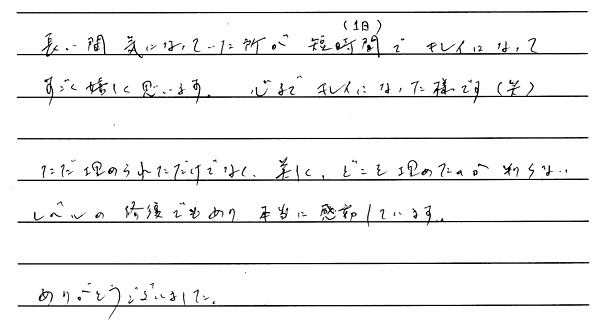 (1日)
長い間 気になっていた所が 短時間で キレイになって
すごく嬉しく思います。 心まで キレイになった様です(笑)
ただ埋められただけでなく、美しく、どこを埋めたのか 判らない
レベルの 修復でもあり 本当に 感動しています。
ありがとうございました。